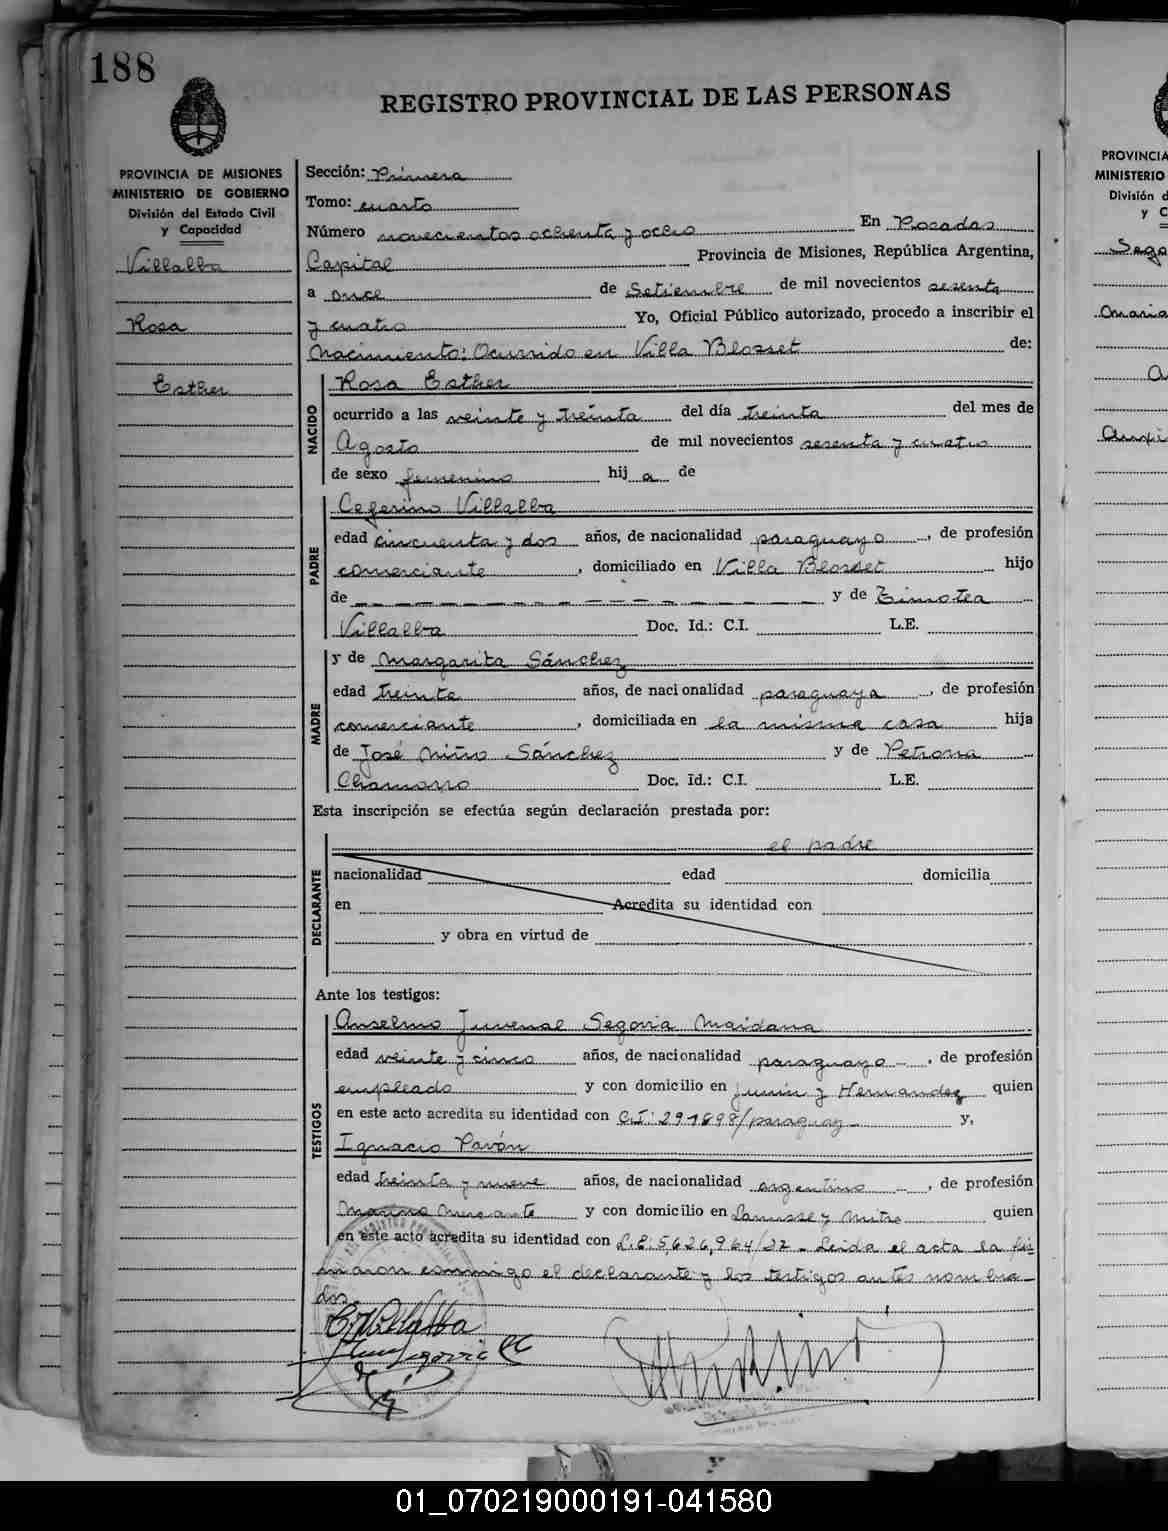 188
REGISTRO PROVINCIAL DE LAS PERSONAS
PROVINCIA DE MISIONES
MINISTERIO DE GOBIERNO
División del Estado Civil
y Capacidad
Villalba
Rosa
Esther
Sección: Primera
Tomo: cuarto
Número novecientos ochenta y ocho En Posadas
Capital Provincia de Misiones, República Argentina,
a once de Setiembre de mil novecientos sesenta
y cuatro Yo, Oficial Público autorizado, procedo a inscribir el
Nacimiento: Ocurrido en Villa Blosset de:
NACIDO
Rosa Esther
ocurrido a las veinte y treinta del día treinta del mes de
Agosto de mil novecientos sesenta y cuatro
de sexo femenino hij a de
PADRE
Ceferino Villalba
edad cincuenta y dos años, de nacionalidad paraguayo, de profesión
comerciante, domiciliado en Villa Blosset hijo
de — — — — — — — — — — — — — y de Timotea
Villalba Doc. Id.: C.I. L.E.
MADRE
y de Margarita Sánchez
edad treinta años, de nacionalidad paraguaya, de profesión
comerciante, domiciliada en la misma casa hija
de José Niño Sánchez y de Petrona
Chamorro Doc. Id.: C.I. L.E.
Esta inscripción se efectúa según declaración prestada por:
DECLARANTE
el padre
nacionalidad edad domicilia
en Acredita su identidad con
y obra en virtud de
Ante los testigos:
TESTIGOS
Anselmo Juvenal Segovia Maidana
edad veinte y cinco años, de nacionalidad paraguayo, de profesión
empleado y con domicilio en Junín y Hernandez quien
en este acto acredita su identidad con C.I: 291898/paraguay y,
Ignacio Pavón
edad treinta y nueve años, de nacionalidad argentino, de profesión
Marino Mercante y con domicilio en Lanusse y Mitre quien
en este acto acredita su identidad con L.E: 5,626,964/27 - Leida el acta la fir-
maron conmigo el declarante y los testigos antes nombra-
dos
C. Villalba
PROVINCIA
MINISTERIO
División d
y C
Sego
Maria
A
01_070219000191-041580